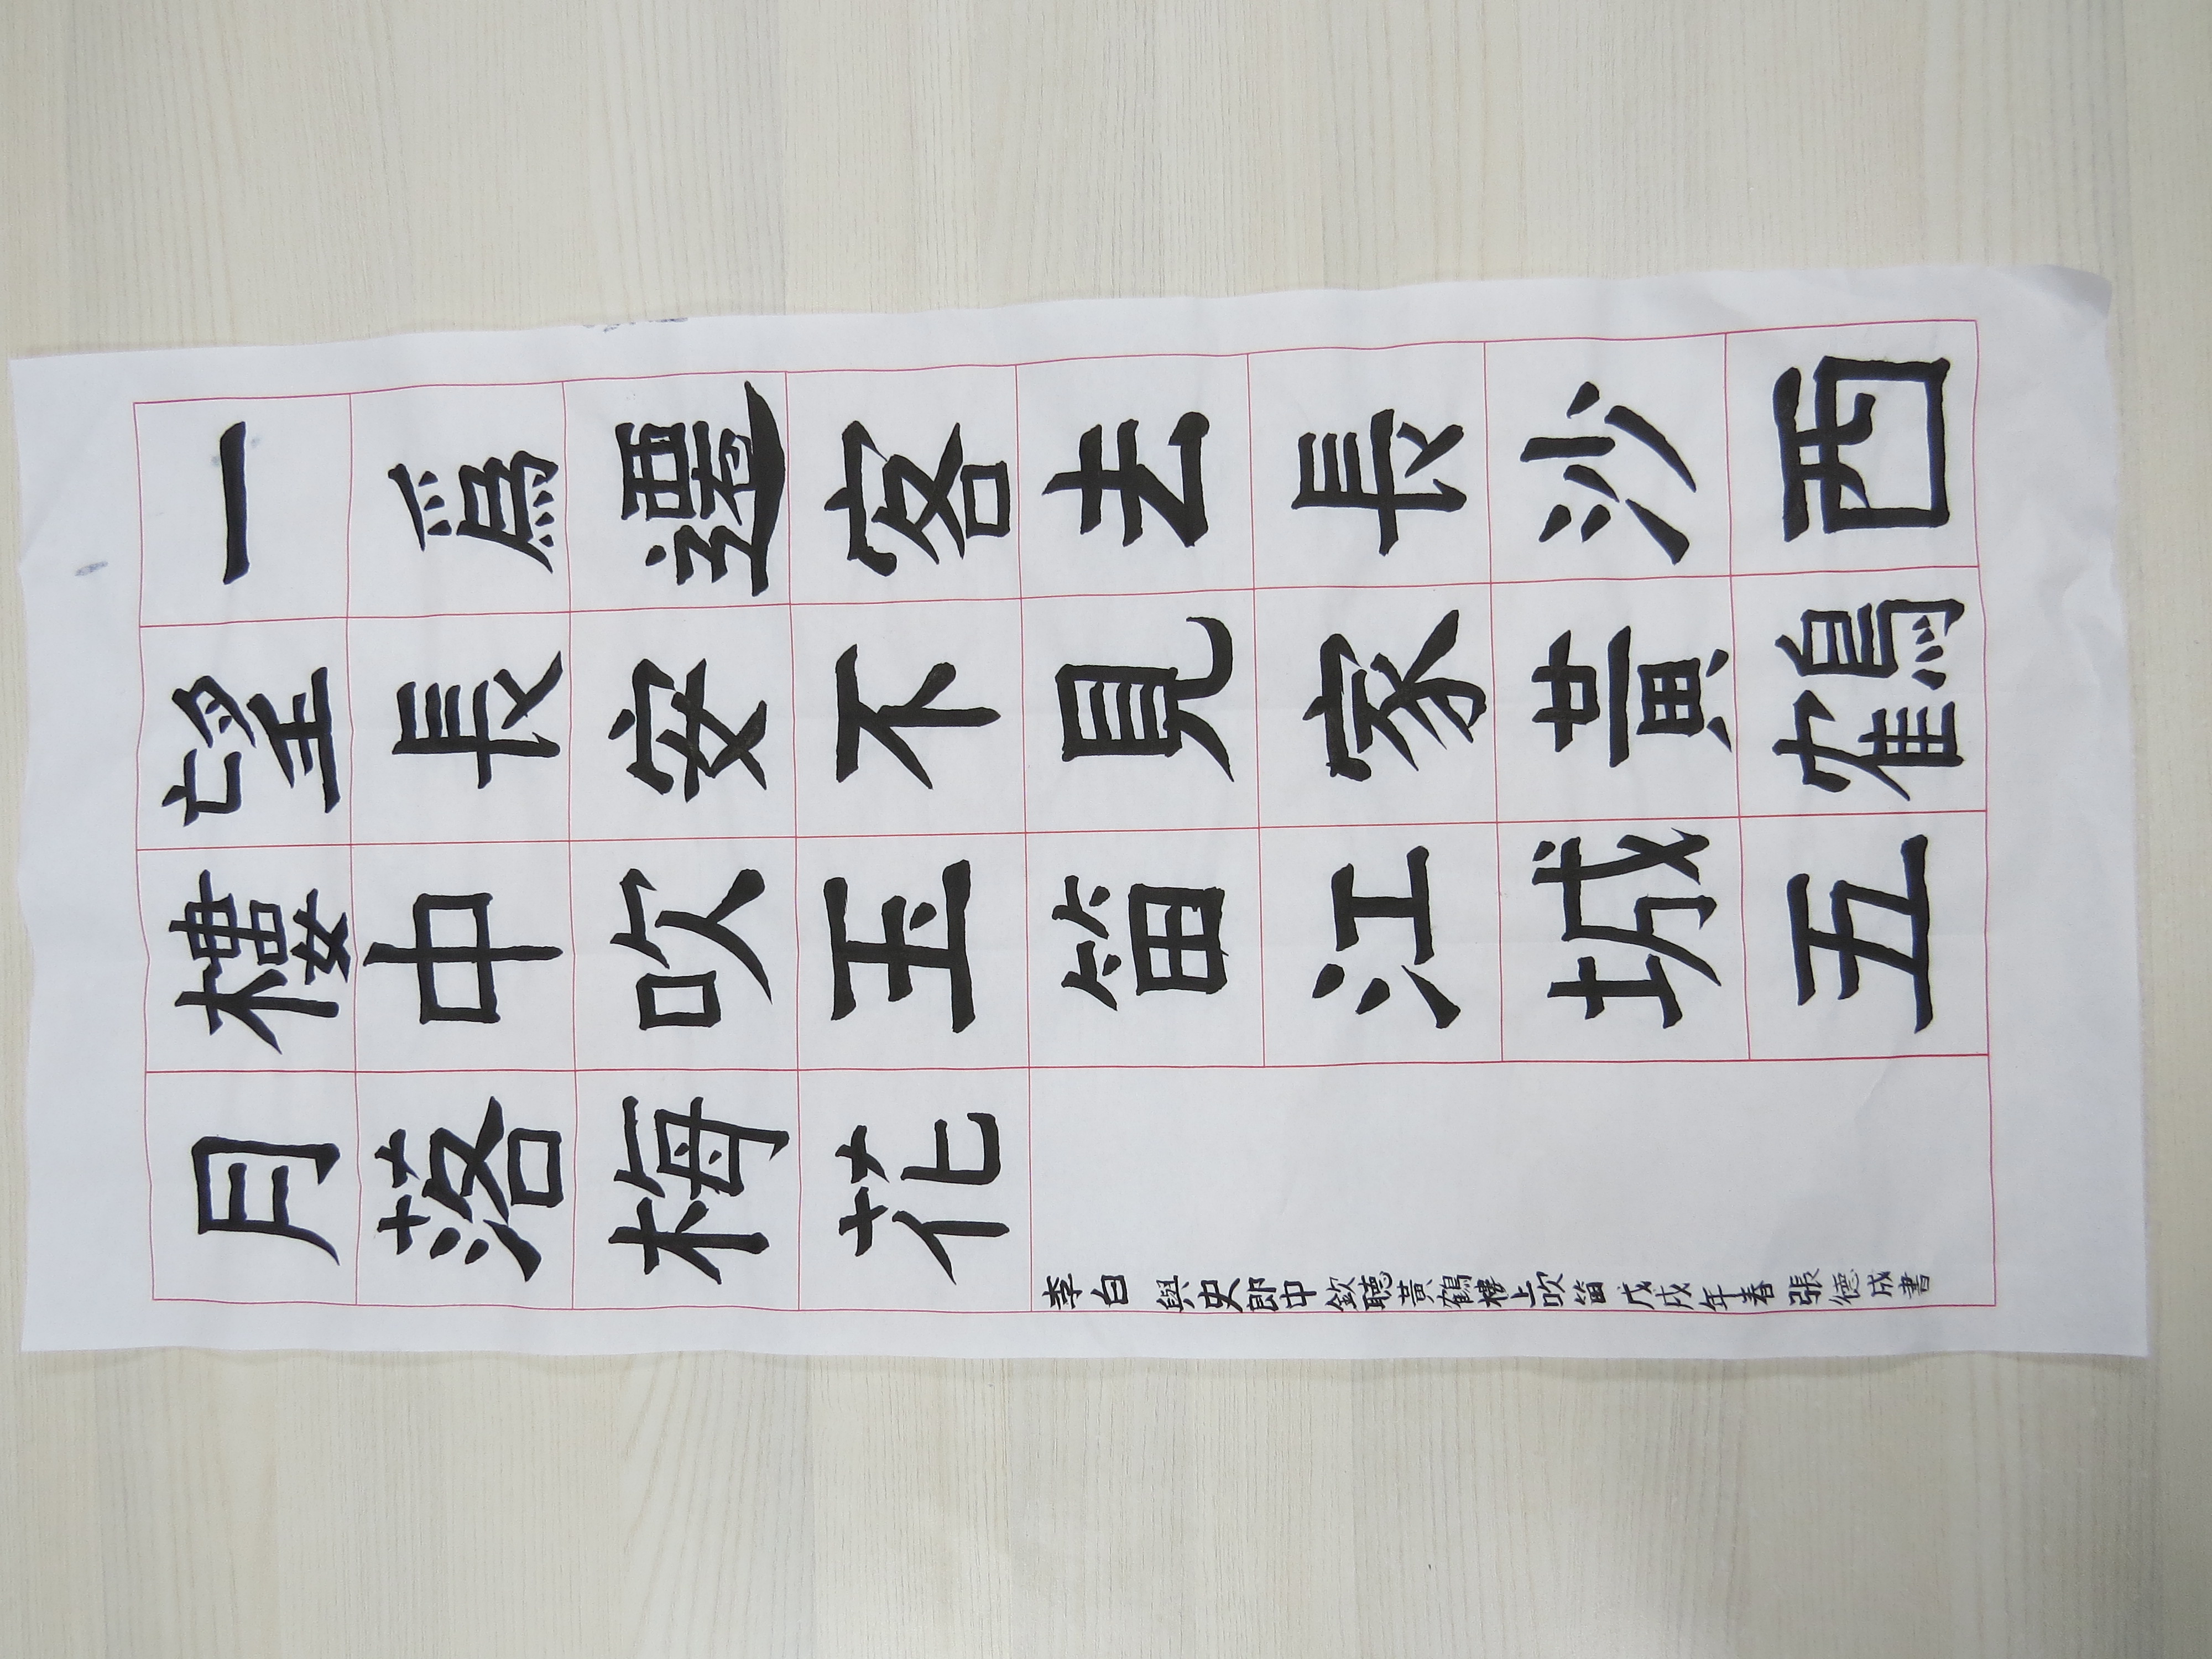 一爲遷客去長沙西
望長安不見家黃鶴
樓中吹玉笛江城五
月落梅花
李白 與史郎中欽聽黃鶴樓上吹笛 戊戌年春 張德成書